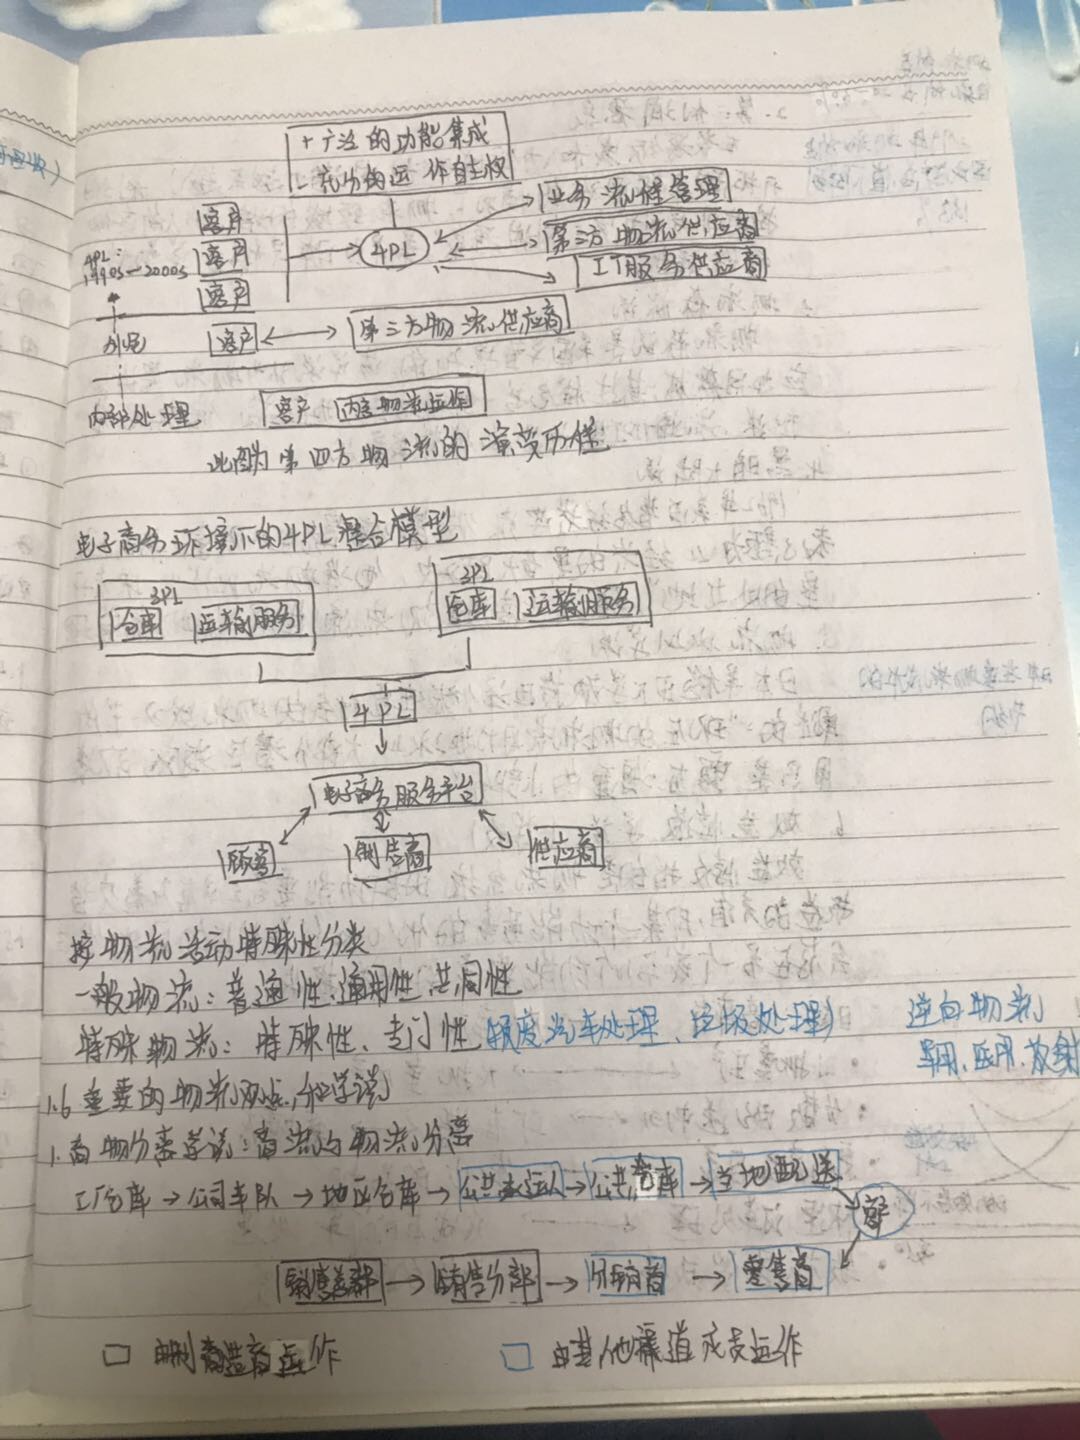 +广泛的功能集成
-充分的运作自主权
业务流程管理
客户
4PL
第三方物流供应商
4PL:
1990s—2000s
客户
IT服务供应商
客户
外包
客户
第三方物流供应商
内部处理
客户
内部物流运作
此图为第四方物流的演变历程
电子商务环境下的4PL整合模型
3PL
3PL
仓库
运输服务
仓库
运输服务
4PL
电子商务服务平台
顾客
制造商
供应商
按物流活动特殊性分类
一般物流:普通性、通用性、共同性
特殊物流:特殊性、专门性(报废汽车处理、垃圾处理)
逆向物流
军用、医用、放射
1.6 重要的物流观点和学说
1.商物分离学说:商流与物流分离
工厂仓库→公司车队→地区仓库→公共承运人→公共仓库→当地配送
客户
销售总部→销售分部→分销商→零售商
由制造商运作
由其他渠道成员运作